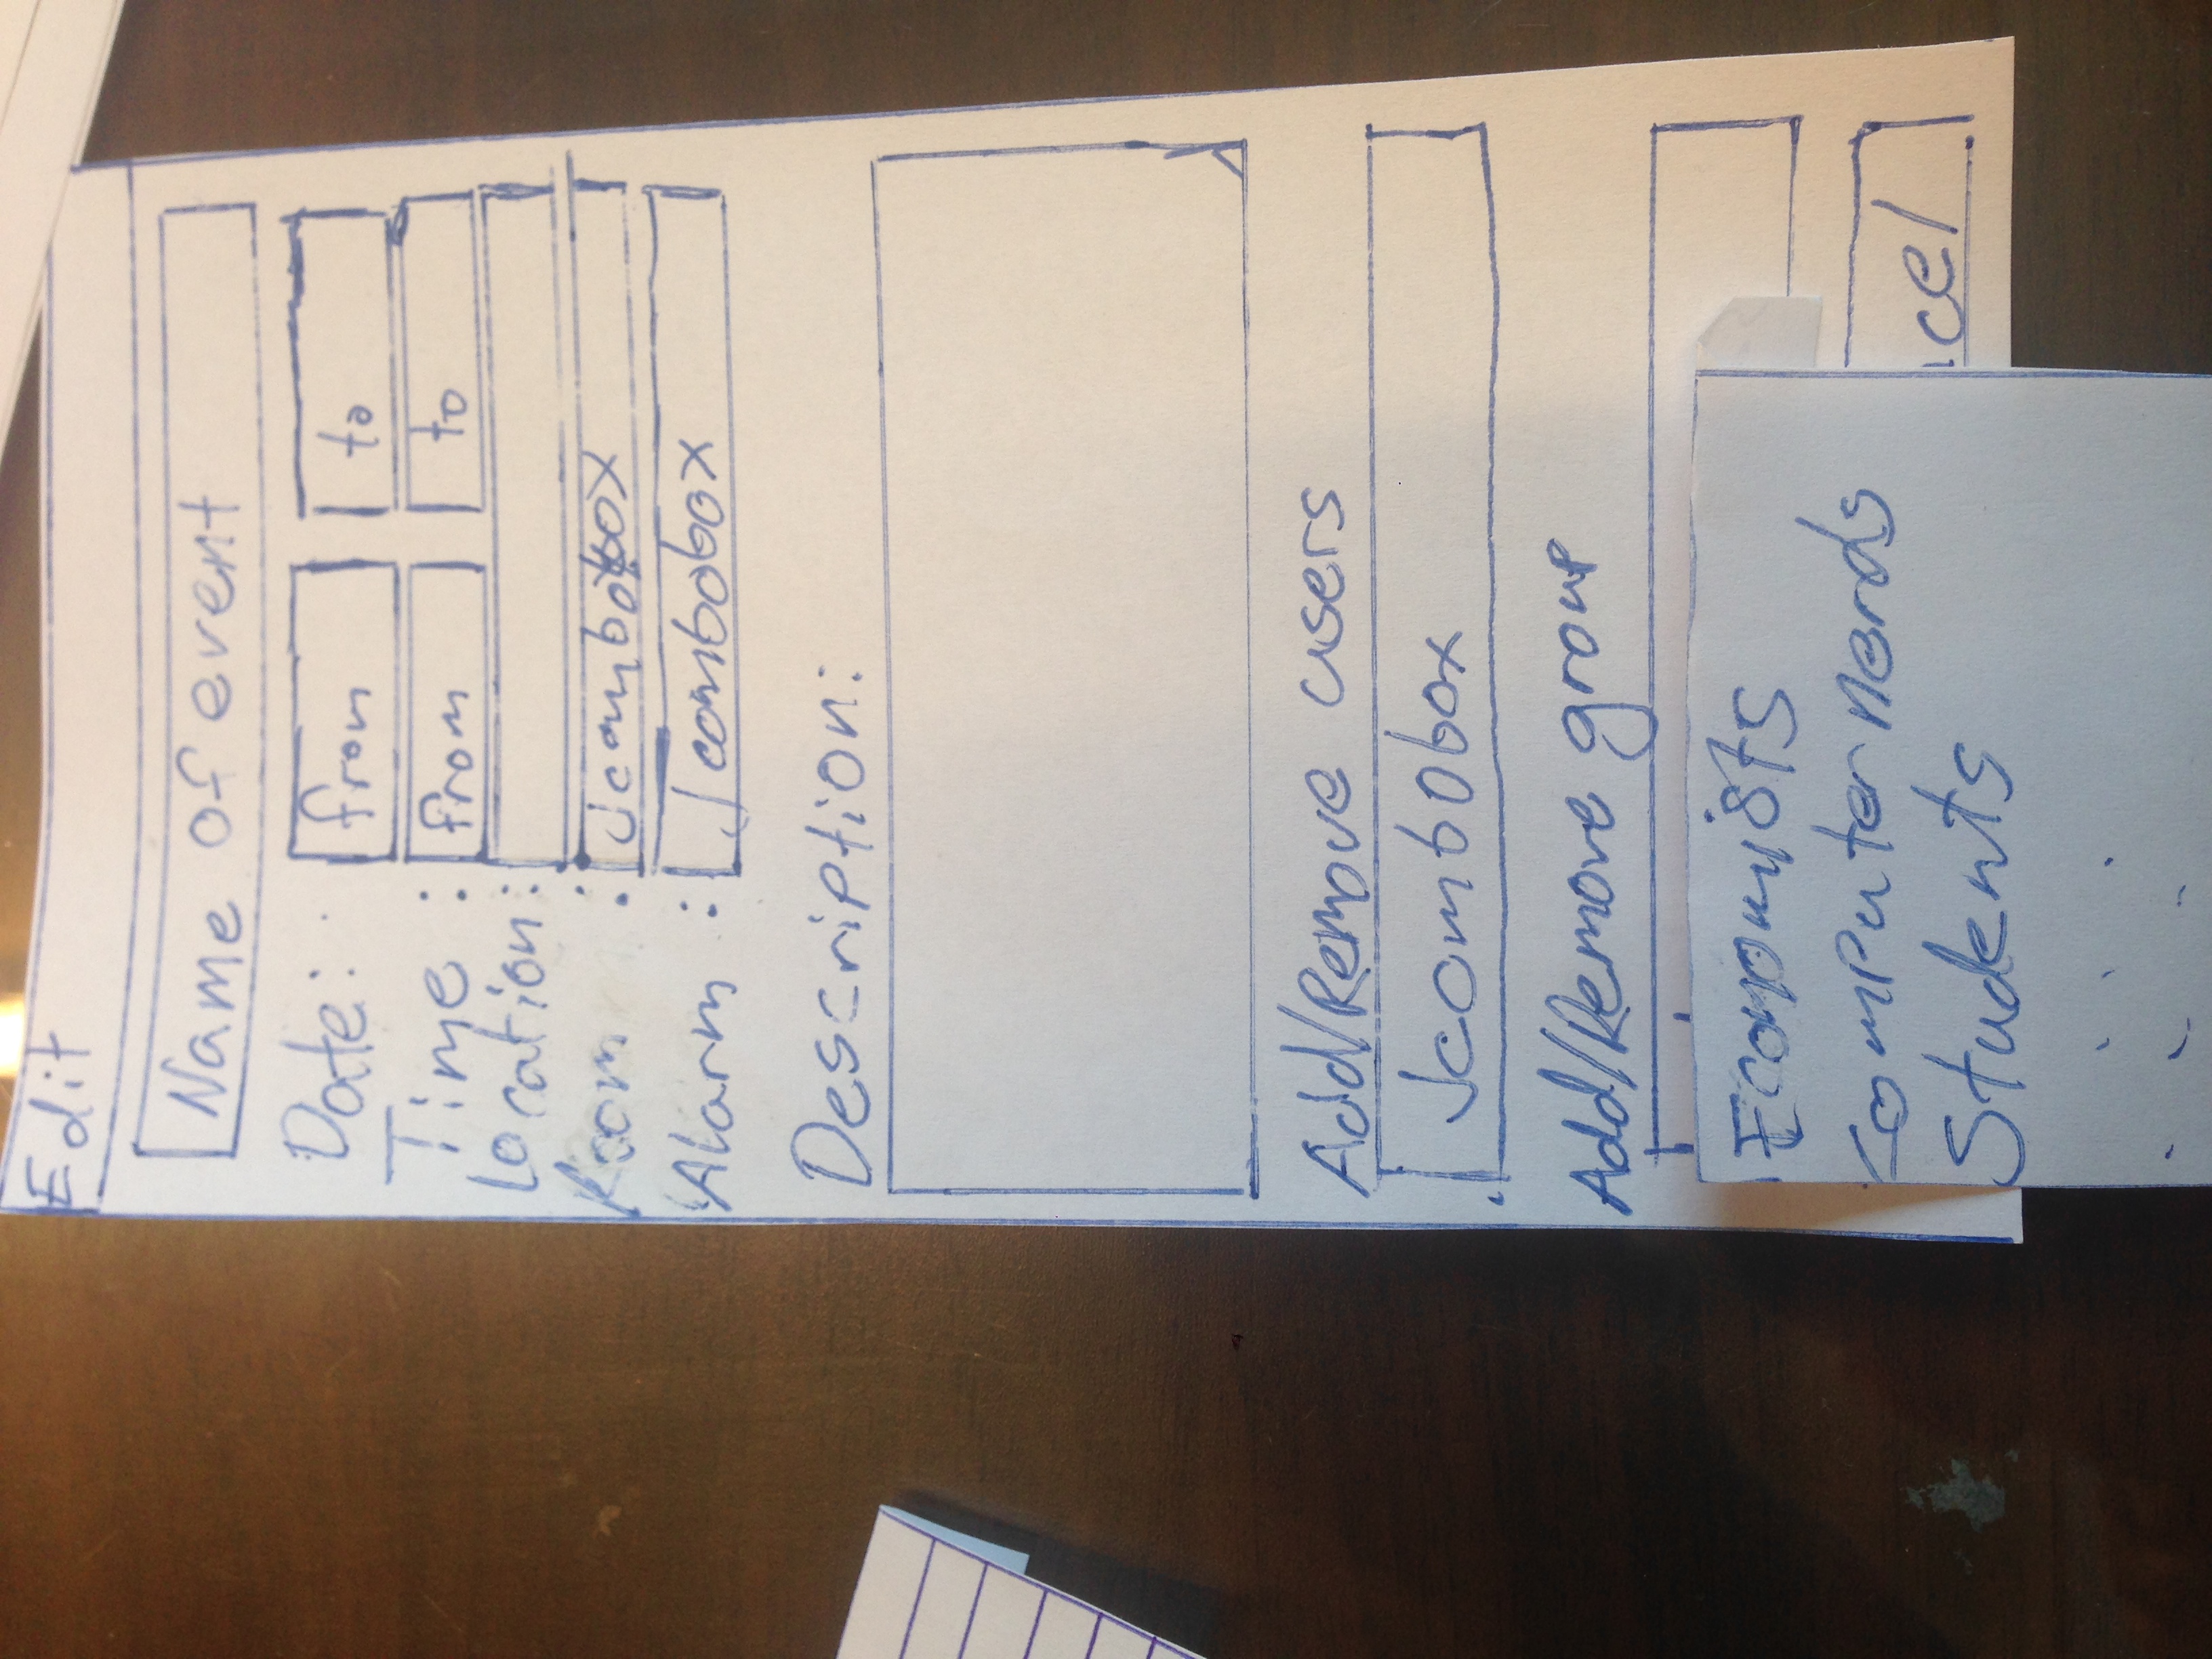 Edit
Name of event
Date: from to
Time: from to
Location:
Room : Jcombobox
Alarm : Jcombobox
Description:
Add/Remove users
Jcombobox
Add/Remove group
Economists
Computer nerds
Students
ncel